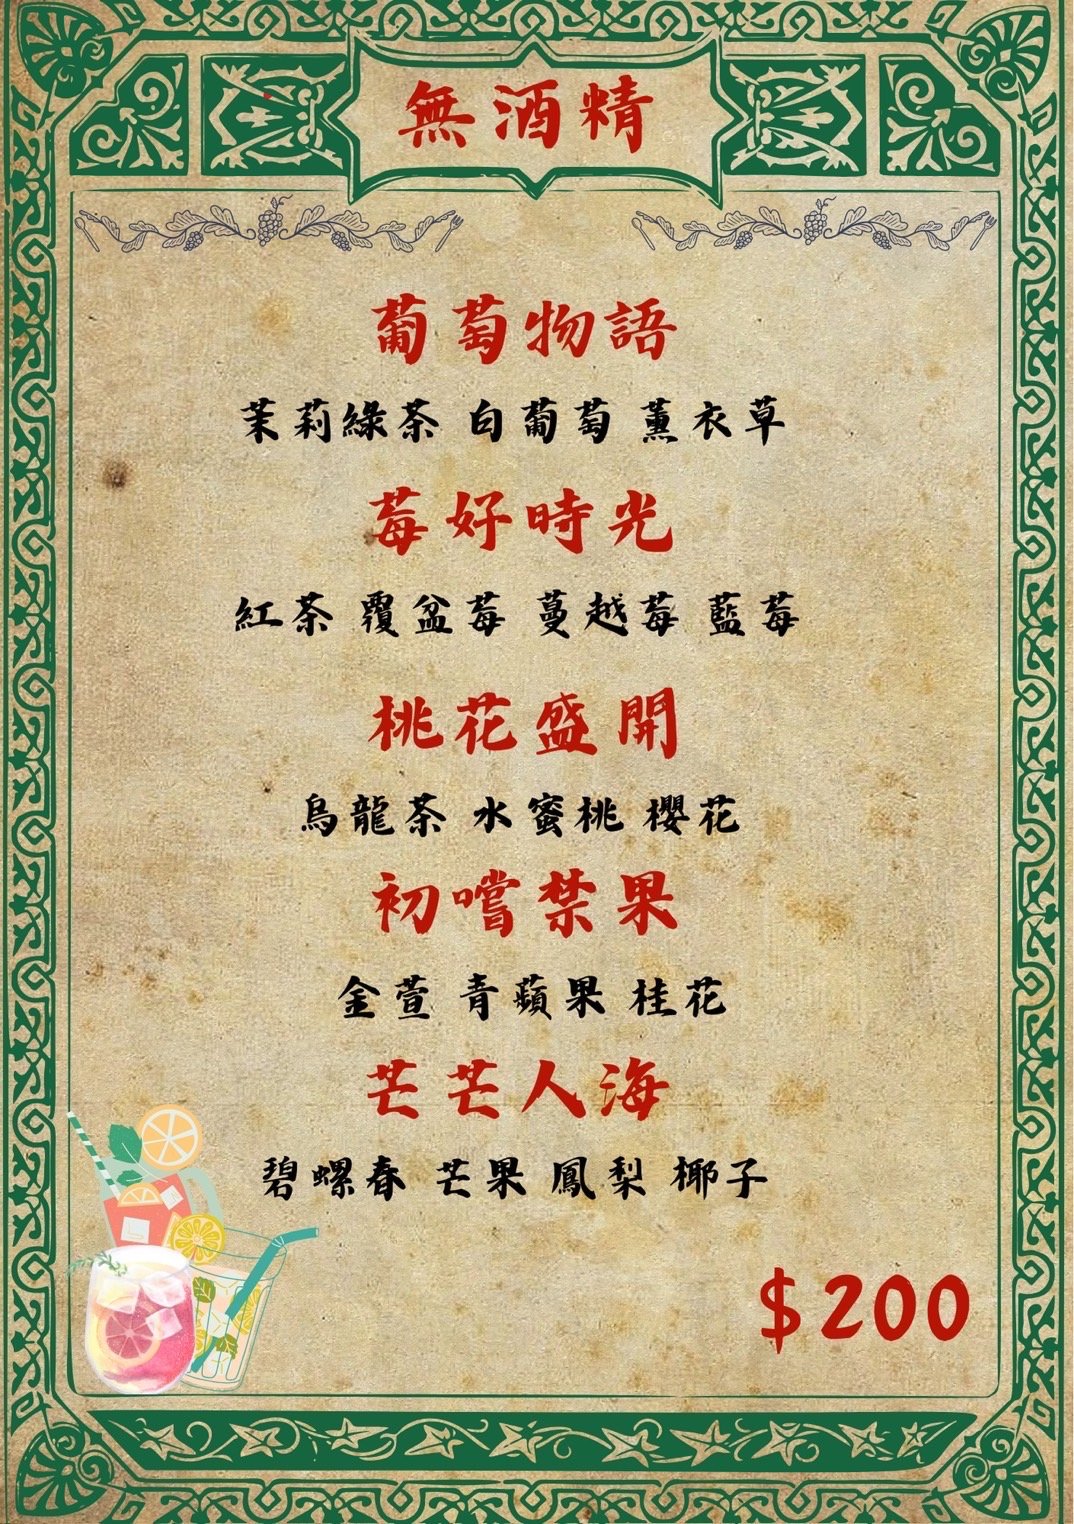 無酒精
葡萄物語
茉莉綠茶 白葡萄 薰衣草
莓好時光
紅茶 覆盆莓 蔓越莓 藍莓
桃花盛開
烏龍茶 水蜜桃 櫻花
初嚐禁果
金萱 青蘋果 桂花
芒芒人海
碧螺春 芒果 鳳梨 椰子
$200